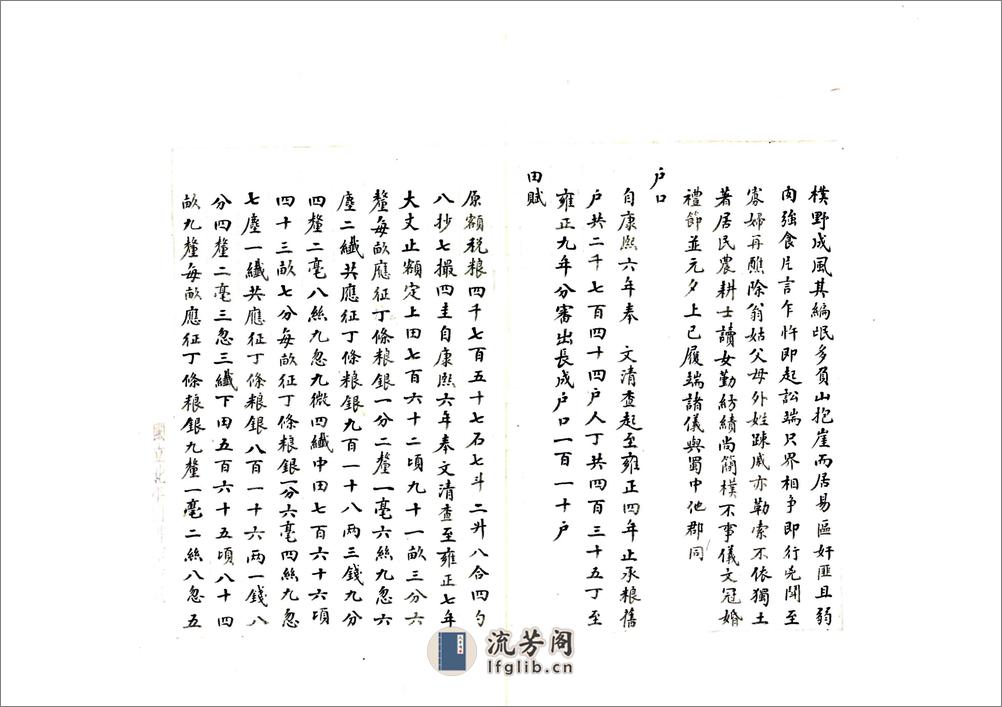 樸野成風其編氓多負山抱崖而居易區奸匪且弱
肉強食片言乍忤即起訟端尺界相爭即行兇鬪至
寡婦再醮除翁姑父母外姓踈戚亦勒索不依獨土
著居民農耕士讀女勤紡績尚簡樸不事儀文冠婚
禮節並元夕上巳履端諸儀與蜀中他郡同
户口
自康熙六年奉　文清查起至雍正四年止承粮舊
户共二千七百四十四户人丁共四百三十五丁至
雍正九年分審出長成户口一百一十户
田賦
原額税粮四千七百五十七石七斗二升八合四勺
八抄七撮四圭自康熙六年奉文清查至雍正七年
大丈止額定上田七百六十二頃九十一畝三分六
釐每畝應征丁條粮銀一分二釐一毫六絲九忽六
塵二纖共應征丁條粮銀九百一十八兩三錢九分
四釐二毫八絲九忽九微四纖中田七百六十六頃
四十三畝七分每畝征丁條粮銀一分六毫四絲九忽
七塵一纖共應征丁條粮銀八百一十六兩一錢八
分四釐二毫三忽三纖下田五百六十五頃八十四
畝九釐每畝應征丁條粮銀九釐一毫二絲八忽五
流芳阁
lfglib.cn